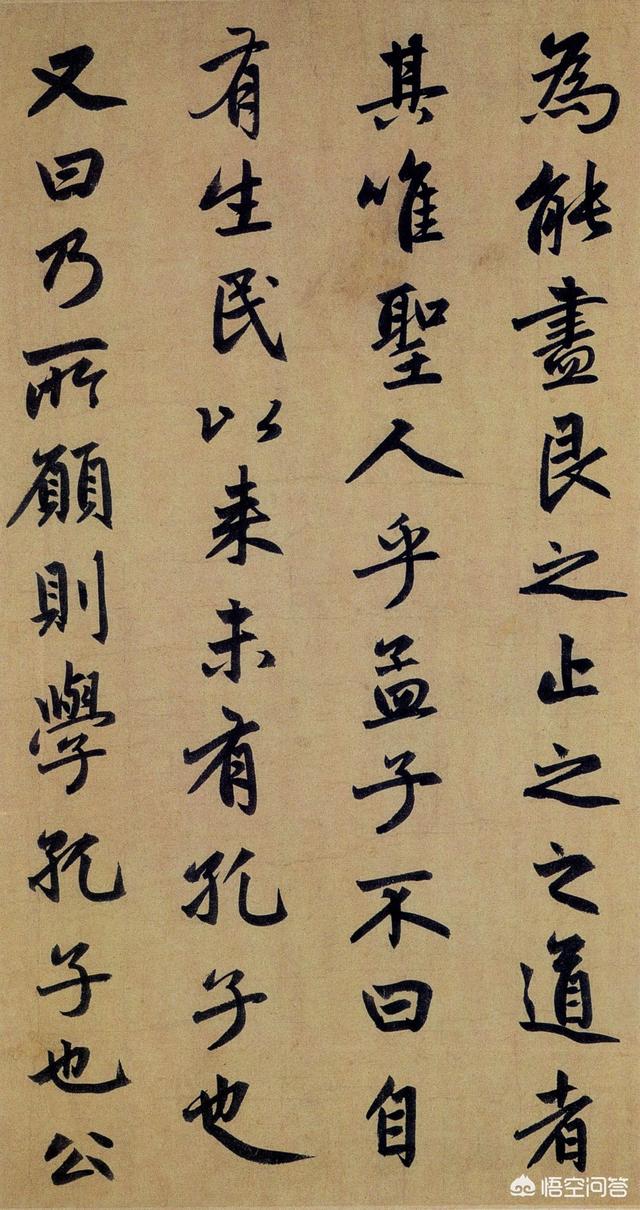 為能盡艮之止之之道者
其唯聖人乎孟子不曰自
有生民以来未有孔子也
又曰乃所願則學孔子也公
悟空问答